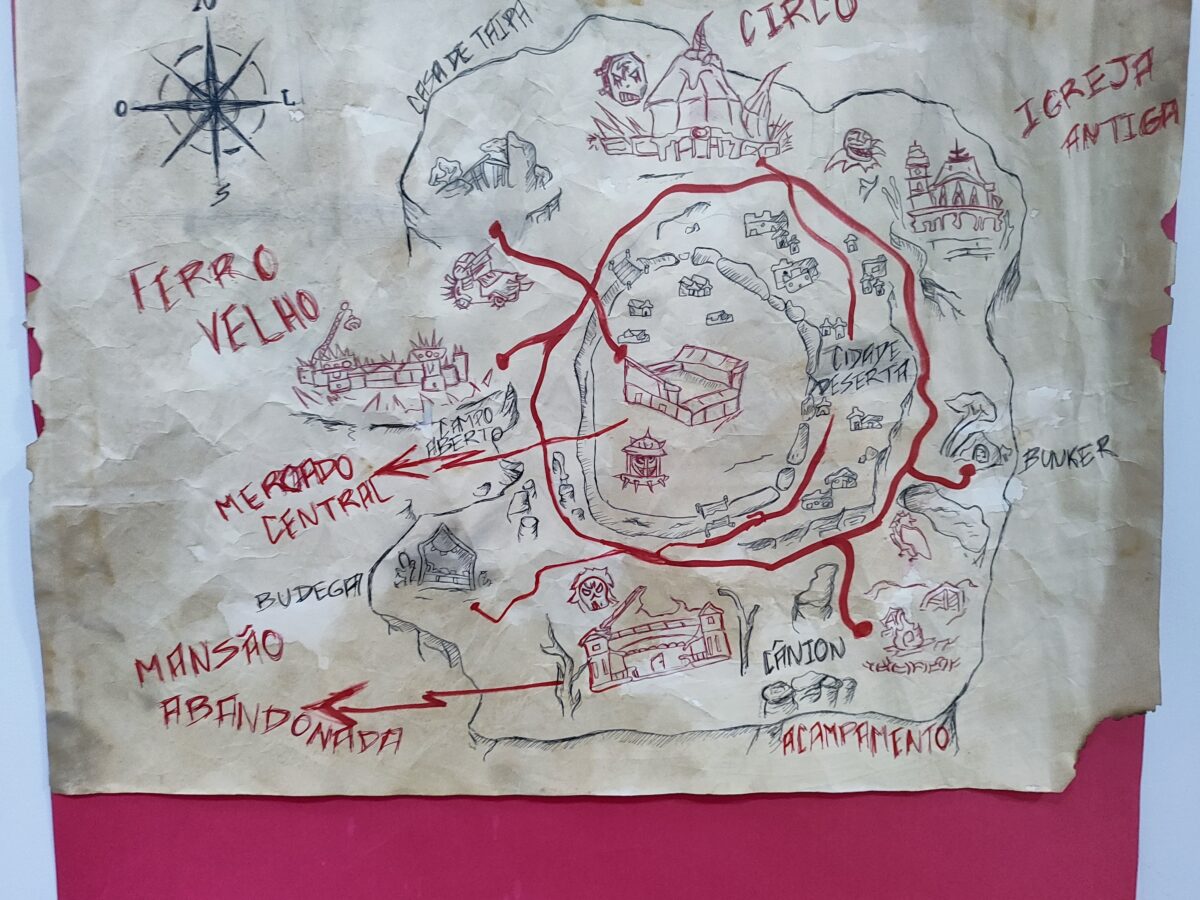 CIRCO
CASA DE TAIPA
O
L
S
IGREJA
ANTIGA
FERRO
VELHO
CIDADE
DESERTA
CAMPO
ABERTO
MERCADO
CENTRAL
BUNKER
BUDEGA
MANSÃO
ABANDONADA
CÂNION
ACAMPAMENTO